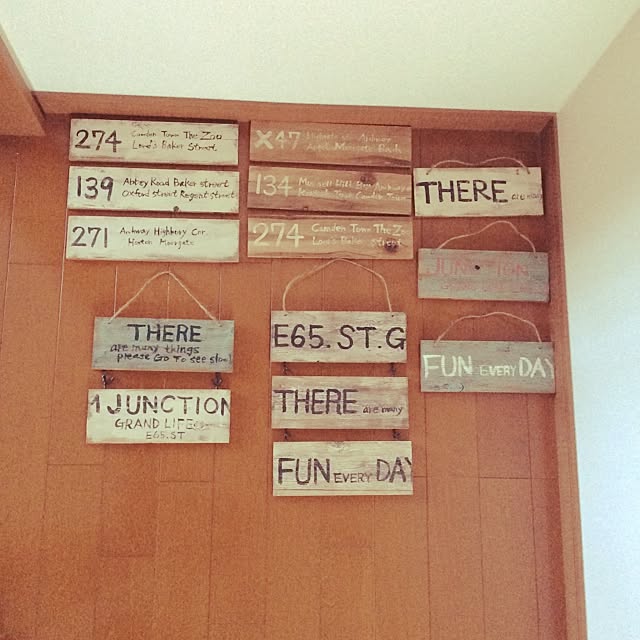 274 Camden Town The Zoo
Lord's Baker Street.
139 Abbey Road Baker street
Oxford street Regent street
271 Archway Highbury Cnr.
Hoxton Moorgate
X47 Highgate Archway
Moorgate Bank
134 Muswell Hill Archway
Kentish Town Camden Town
274 Camden Town The Zo
Lord's Baker Street.
THERE are many
JUNCTION
GRAND LIFE
FUN EVERY DAY
THERE
are many things
please Go To see slow
1 JUNCTION
GRAND LIFE
E65.ST
E65.ST.G
THERE are many
FUN EVERY DAY